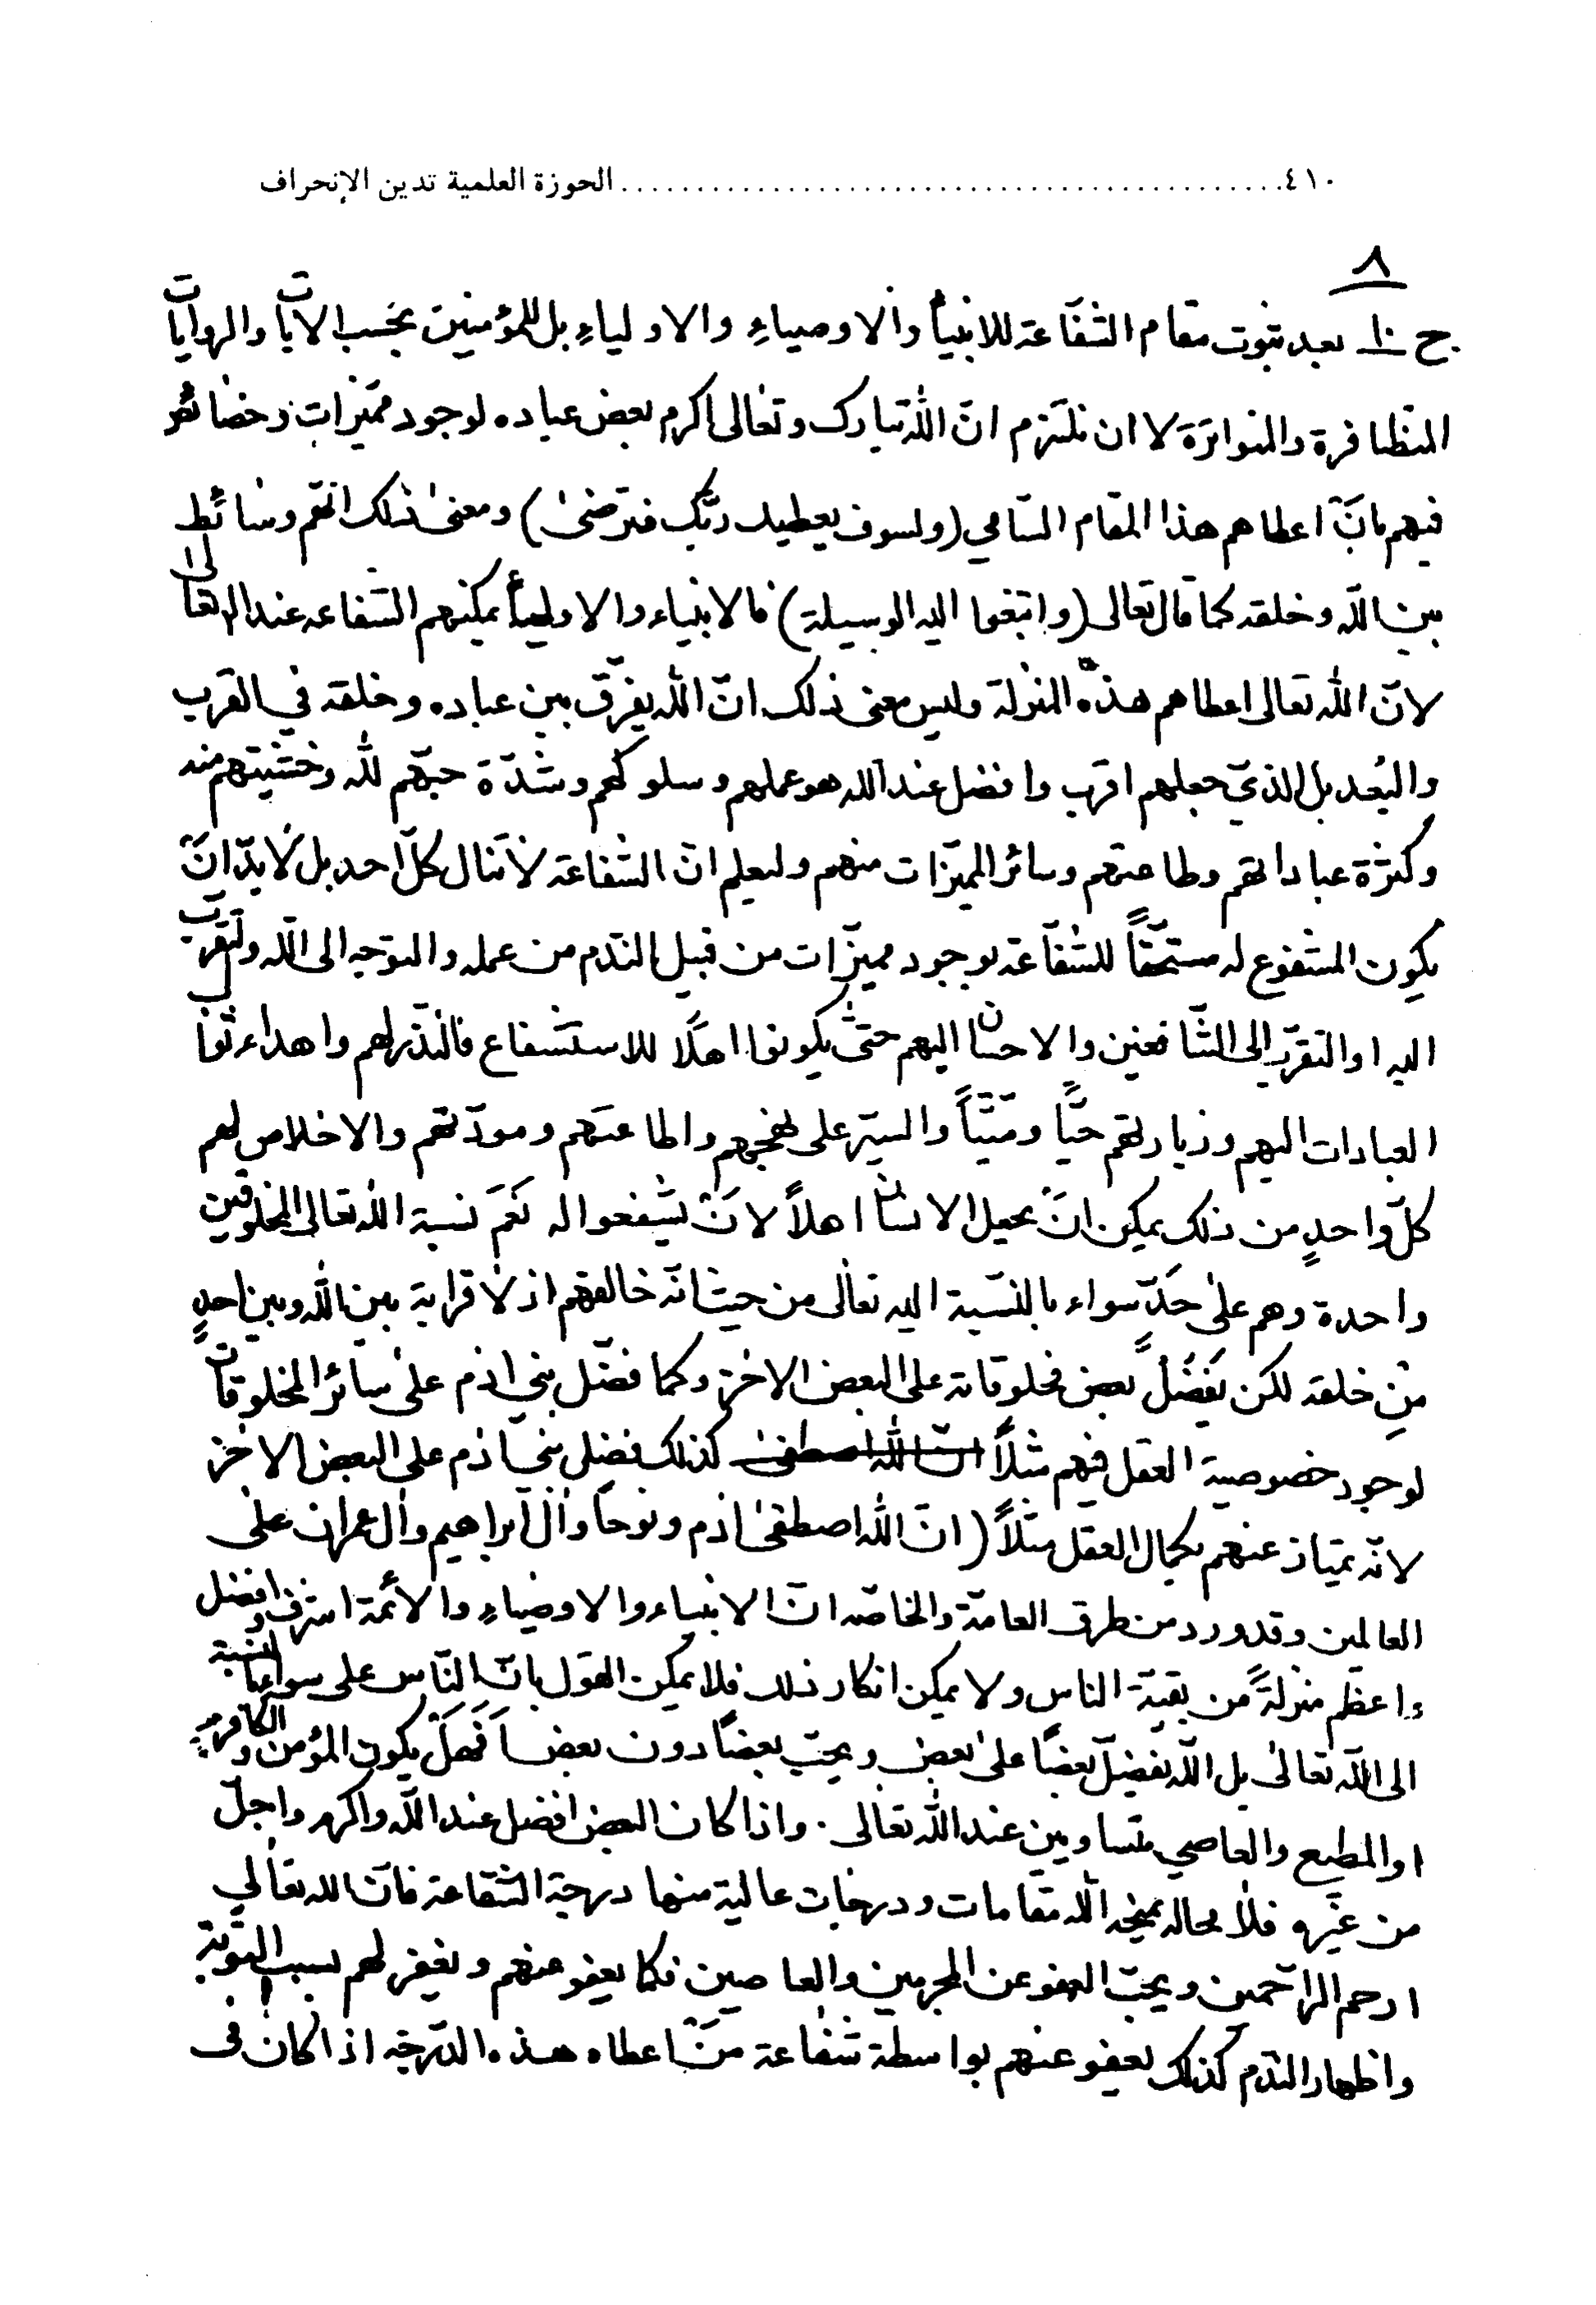 ٤١٠ ........................................... الحوزة العلمية تدين الإنحراف
٨
ج ١٠ بعد ثبوت مقام الشفاعة للانبياء والاوصياءِ والاولياءِ بل للمؤمنين بحسب الايات والروايات
المتظافرة والمتواترة لا ان نلتزم انّ اللّه تبارك وتعالى اكرم بعض عباده لوجود مميّزات وخصائص
فيهم بانّ اعطاهم هذا المقام السّامي (ولسوف يعطيك ربّك فترضىٰ) ومعنىٰ ذلك انهّم وسائط
بين اللّه وخلقه كما قال تعالى (وابتغوا اليه الوسيلة) فالانبياء والاولياء يمكنهم الشفاعه عند اللّه تعالى
لانّ اللّه تعالى اعطاهم هذه المنزلة وليس معنى ذلك انّ اللّه يفرّق بين عباده وخلقه في القرب
والبُعد بل الذي جعلهم اقرب وافضل عند اللّه هو عملهم وسلوكهم وشدّة حبّهم للّه وخشيتهم منه
وكثرة عباداتهم وطاعتهم وسائر المميّزات منهم وليعلم انّ الشفاعة لا تنال كلّ احد بل لا بدّ ان
يكون المشفوع له مستحقاً للشفاعة بوجود مميزات من قبيل النّدم من عمله والتوجه الى اللّه والتقرّب
اليه او التقرّب إلى الشّافعين والاحسان اليهم حتىّ يكونوا اهلاً للاستشفاع فالنّذر لهم واهداء ثواب
العبادات اليهم وزيارتهم حيّاً وميّتاً والسير على نهجهم واطاعتهم ومودّتهم والاخلاص لهم
كلّ واحدٍ من ذلك يمكن انّ يجعل الانسان اهلاً لانّ يشفعوا له نعمَ نسبة اللّه تعالى المخلوقين
واحدة وهم علىٰ حدّ سواء بالنسبة اليه تعالى من حيث انّه خالقهم اذ لا قرابة بين اللّه وبين احدٍ
مِن خلقه لكن يَفضُلُ بعض مخلوقاته على البعض الاخر وكما فضّل بني ادم علىٰ سائر المخلوقات
لوجود خصوصية العقل فيهم مثلاً انّ اللّه اصطفىٰ كذلك فضل بني ادم على البعض الاخر
لانّه يمتاز عنهم بكمال العقل مثلاً (انّ اللّه اصطفىٰ ادم ونوحاً وآل ابراهيم وآل عمران على
العالمين وقد ورد من طرق العامّة والخاصّه انّ الانبياء والاوصياءِ والأئمة اشرف وافضل
واعظم منزلةً من بقية الناس ولا يمكن انكار ذلك فلا يمكن القول بانّ النّاس على سواء بالنسبة
الى اللّه تعالىٰ بل اللّه يفضّل بعضاً علىٰ بعض ويحبّ بعضاً دون بعضاً فهل يكون المؤمن والكافر
او المطيع والعاصي متساويين عند اللّه تعالى. واذا كان البعض افضل عند اللّه واكرم واجلّ
من غيره فلا محاله يمنحه اللّه مقامات ودرجات عالية منها درجة الشفاعة فانّ اللّه تعالي
ارحم الراحمين ويحبّ العفو عن المجرمين والعاصين فكما يعفو عنهم ويغفر لهم بسبب التوبة
واظهار النّدم كذلك يعفو عنهم بواسطة شفاعة منّ اعطاه هذه الدّرجة اذا كان في